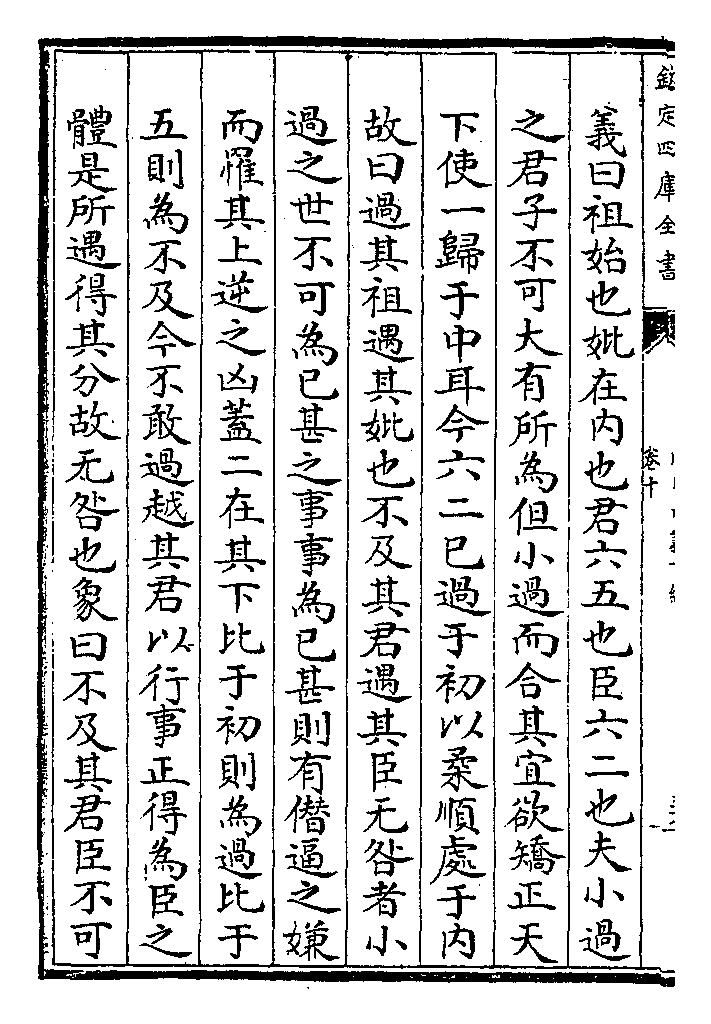 欽定四庫全書
卷十
義曰祖始也妣在内也君六五也臣六二也夫小過
之君子不可大有所為但小過而合其宜欲矯正天
下使一歸于中耳今六二已過于初以柔順處于内
故曰過其祖遇其妣也不及其君遇其臣无咎者小
過之世不可為已甚之事事為已甚則有僭逼之嫌
而罹其上逆之凶蓋二在其下比于初則為過比于
五則為不及今不敢過越其君以行事正得為臣之
體是所遇得其分故无咎也象曰不及其君臣不可